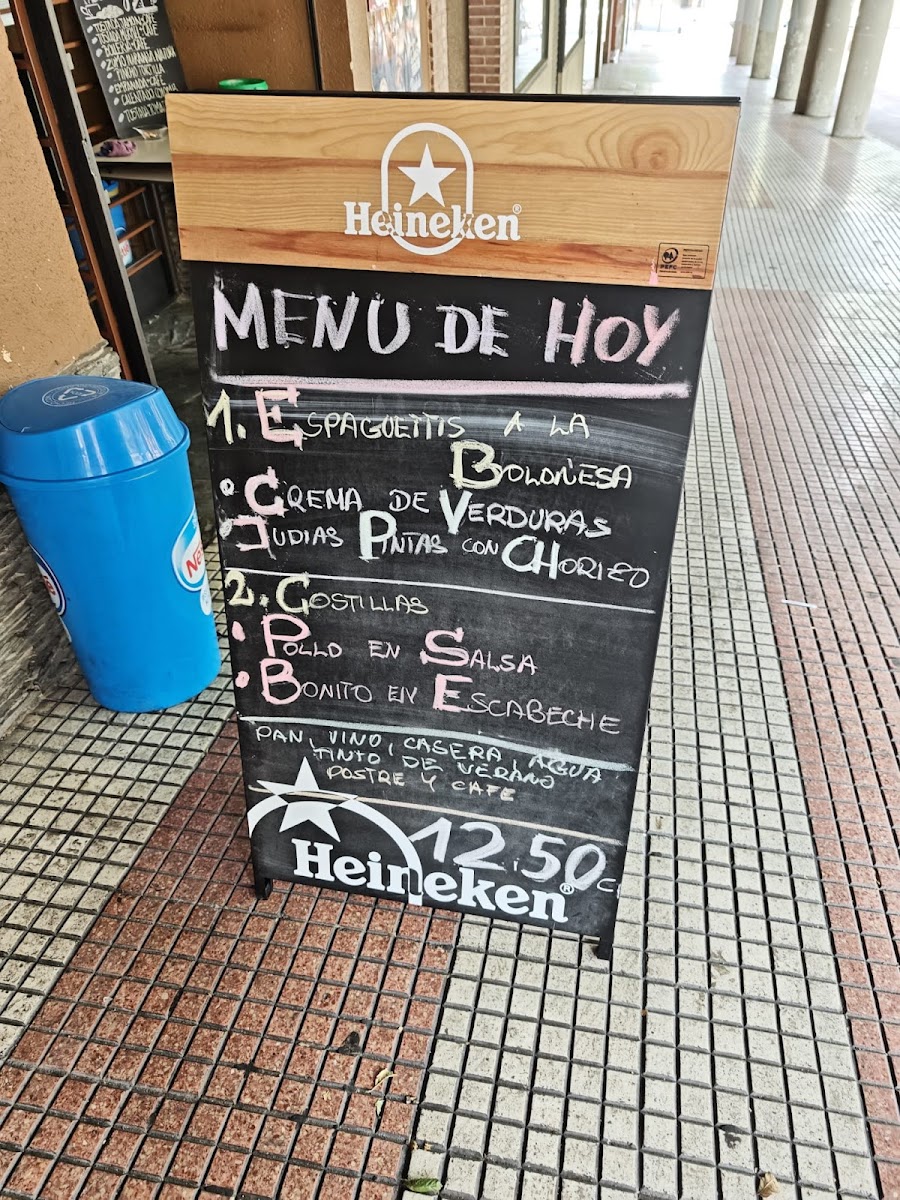 Heineken®
PEFC
MENU DE HOY
1. ESPAGUETTIS A LA
BOLOÑESA
CREMA DE VERDURAS
JUDIAS PINTAS CON CHORIZO
2. COSTILLAS
POLLO EN SALSA
BONITO EN ESCABECHE
PAN, VINO, CASERA, AGUA
TINTO DE VERANO
POSTRE Y CAFE
12,50 €
Heineken®